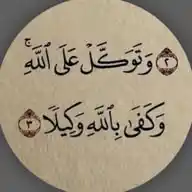 ﴿٢﴾ وَتَوَكَّلْ عَلَى ٱللَّهِ ۚ
وَكَفَىٰ بِٱللَّهِ وَكِيلًا ﴿٣﴾